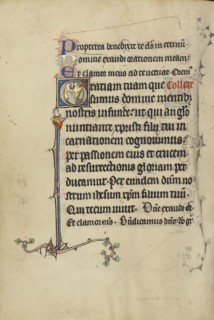 Propterea benedixit te deus in eternum
Domine exaudi orationem meam
Et clamor meus ad te veniat Orem
Gratiam tuam que Collect
sumus domine mentibz
nostris infunde ut qui angelo
nuntiante xpisti filii tui in
carnationem cognouimus
per passionem eius et crucem
ad resurrectionis gloriam per
ducamur. Per eundem dnm no
strum ihesum xpm filium tuu
Qui tecum uiuit. Dne exaudi or
Et clamor eius. Benedicamus dno do gr